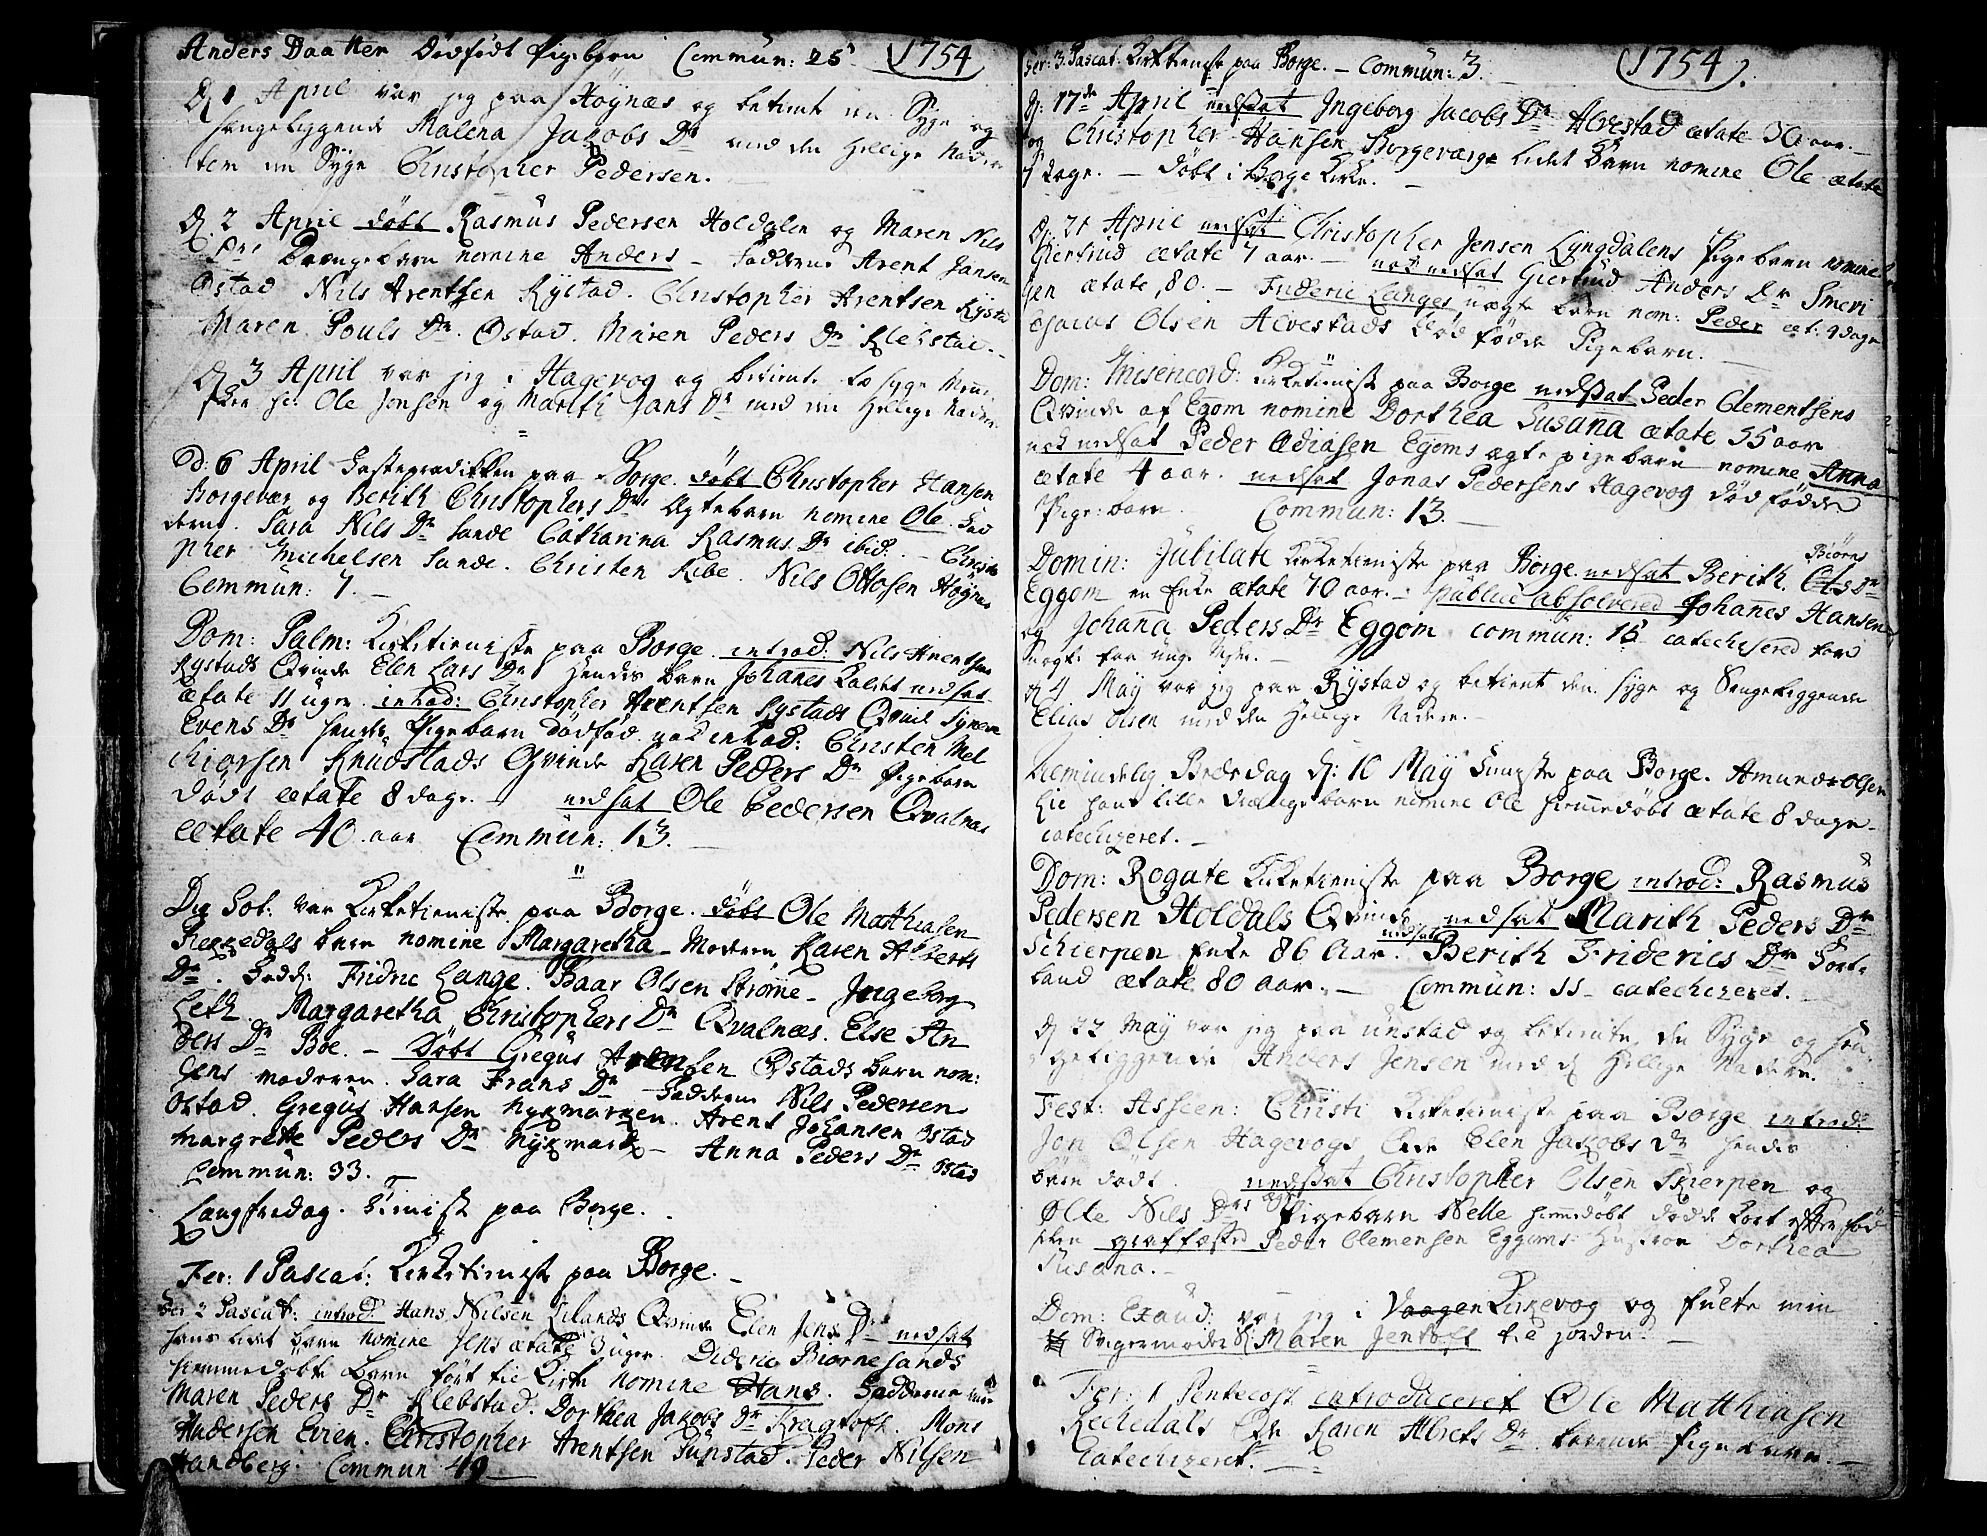 Anders Daatter Dødfødt Pigebarn Commun: 25 1754
D 1 April var jeg paa Høynæs og betient en Syge og
Sengeliggende Malena Jacobs Dr med den Hellige Nadere
tem en Syge Christopher Pedersen.
D. 2 April døbt Rasmus Pedersen Holdalen og Maren Nils
Drs Drengebarn nomine Anders - Fadderne Arent Jansen
Østad Nils Arentsen Rystad. Christopher Arentsen Rystad
Maren Pouls Dr. Østad. Maren Peders Dr Klebstad.
D 3 April var jeg i Hagevog og betiente to syge Menn
sker sc: Ole Jonsen og Marith Jans Dr med den Hellige Nadere
D: 6 April Fasteprædikken paa Borge. døbt Christopher Hansen
Borgevær og Berith Christophers Drs Ægtebarn nomine Ole. Fad
derne. Sara Nils Dr Sande Catharina Rasmus Dr ibid. - Christo
pher Michelsen Sande. Christen Ribe. Nils Ottosen Høynæs
Commun: 7.
Dom: Palm: Kirketieniste paa Borge. introd: Nils Arentsen
Rystads Qvinde Elen Lars Dr Hendes barn Johannes kaldet nedsat
ætate 11 uger. introd: Christopher Arentsen Rystads Qvind Synneve
Evens Dr hendes Pigebarn dødfød. nok introd: Christen Mel
chiorsen Knudstads Qvinde Karen Peders Dr Pigebarn
dødt ætate 8 dage. nedsat Ole Pedersen Qvalnæs
ætate 40 aar Commun: 13.
Die Sol: var Kirketieniste paa Borge. døbt Ole Matthiasen
Rekkedals barn nomine Margaretha - Moderen Karen Alberts
Dr. Fadd: Fridric Lange. Baar Olsen Strøme - Ingeborg
Leth. Margaretha Christophers Dr Qvalnæs. Else An
ders Dr Boe. - Døbt Gregus Arentsen Østads barn nom:
Jens moderen. Sara Frans Dr - Fadderne Nils Pedersen
Ostad. Gregus Hansen Nykmarken. Arent Johansen Ostad
Margrethe Peders Dr Nykmark - Anna Peders Dr Ostad
Commun: 33.
Langfredag. Tienist paa Borge.
Fer: 1 Pascat: Kirketienist paa Borge.
Fer 2 Pascat: introd: Hans Nilsen Lilands Qvinde Elen Jens Dr nedsat
hans lidet barn nomine Jens ætate 3 uger. Dideric Biørnesands
hiemmedøbte Barn ført til Kirke nomine Hans. Fadderne
Maren Peders Dr Klebstad. Dorthea Jacobs Dr Kragtoft. Mons
Andersen Evien. Christopher Arentsen Tupstad. Peder Nilsen
Handberg. Commun 49
Fer: 3 Pascat: Kirketieniste paa Borge. - Commun: 3. 1754.
D: 17de April nedsat Ingeborg Jacobs Dr Alvestad ætate aar.
og Christopher Hansen Borgeværs lidet barn nomine Ole ætate
7 dage. - Døbt i Borge Kirke.
D: 21 April nedsat Christopher Jensen Lyngdalens Pigebarn nomine
Giertrud ætate 7 aar. - nok nedsat Giertrud Anders Dr Smeri
gen ætate 80. - Frideric Langes uægte barn nom: Peder æt: 9 dage
Jacus Olsen Alvestads død fødde Pigebarn.
Dom: Misericord: Kirketienist paa Borge nedsat Peder Clementsens
Qvinde af Egom nomine Dorthea Susana ætate 55 aar
nok nedsat Peder Ædiasen Egoms ægte pigebarn nomine Anna
ætate 4 aar. nedsat Jonas Pedersens Hagevog død fødde
Pige: barn. Commun: 13.
Domin: Jubilate Kirketieniste paa Borge. nedsat Berith Biørns Ols Dr
Eggom en Enke ætate 70 aar. - publice absolvered Johanes Hansen
og Johana Peders Dr Eggom. commun: 15 catechisered
D 4 May var jeg paa Rystad og betient den syge og Sengeliggende
Elias Olsen med den Hellige Nadere.
Almindelig Bededag D: 10 May Tieniste paa Borge. Amund Olsen
Lie hans lille Drengebarn nomine Ole hiemmedøbt ætate 8 dage.
catechizeret.
Dom: Rogate Kirketieniste paa Borge introd: Rasmus
Pedersen Holdals Qvinde nedsat Marith Peders Dr
Schierpen Enke 86 Aar. nedsat Berith Friderics Dr Fort-
land ætate 80 aar. - Commun: 11 - catechizeret.
D 22 May var jeg paa Unstad og betiente den Syge og sen
geliggende Anders Jensen med D Hellige Nadere.
Fest: Ascen: Christi Kirketieniste paa Borge introd:
Jon Olsen Hagevogs Qde Elen Jacobs Dr hendes
børn død. nedsat Christopher Olsen Skierpen og
Ølle Nils Drs ægte Pigebarn Nelle hiemdøbt døde kort efter fød
selen graffæsted Peder Clemensen Eggoms Hustroe Dorthea
Susana.
Dom: Exaud: var jeg i Vaagen Kirkevog og fulte min
Svigermoder S: Maren Jentoft til jorden.
Fer: 1 Pentecost introduceret Ole Matthiasen
Rechedals Qde Karen Alberts Dr levende Pigebarn.
Catechizeret.